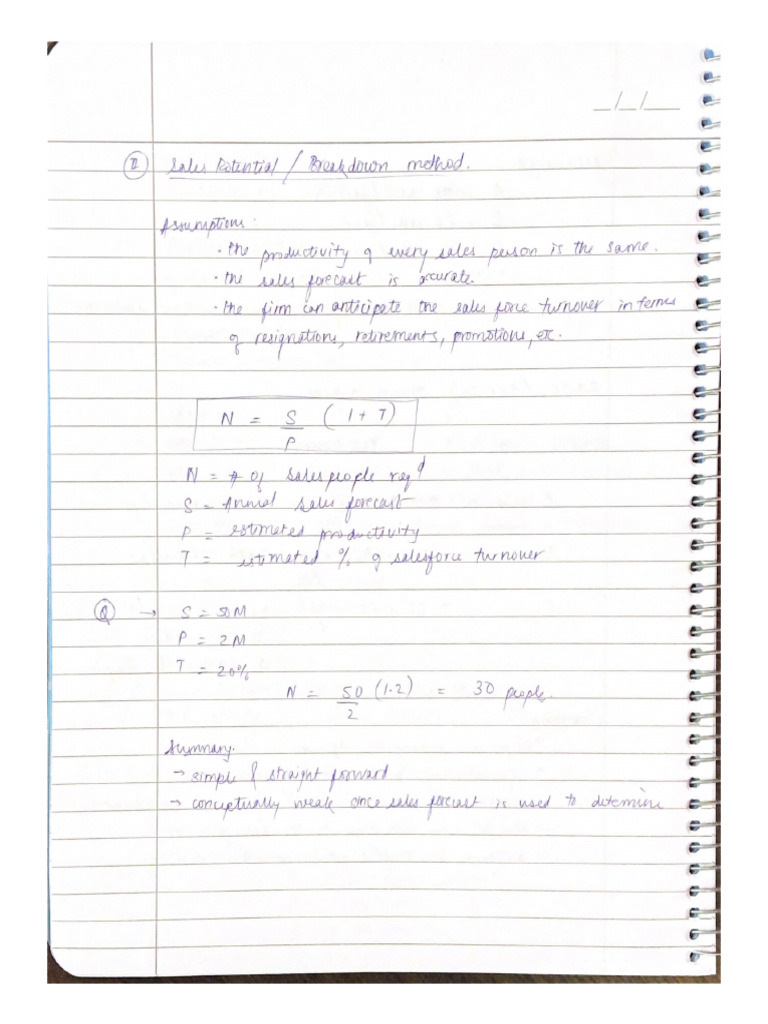 _/_/__
II Sales Potential / Breakdown method.
Assumptions:
· the productivity of every sales person is the same.
· the sales forecast is accurate.
· the firm can anticipate the sales force turnover in terms
of resignations, retirements, promotions, etc.
N = S/P (1 + T)
N = # of salespeople reqd
S = Annual sales forecast
P = estimated productivity
T = estimated % of salesforce turnover
Q → S = 50M
P = 2M
T = 20%
N = 50/2 (1.2) = 30 people.
Summary.
→ simple & straight forward
→ conceptually weak once sales forecast is used to determine